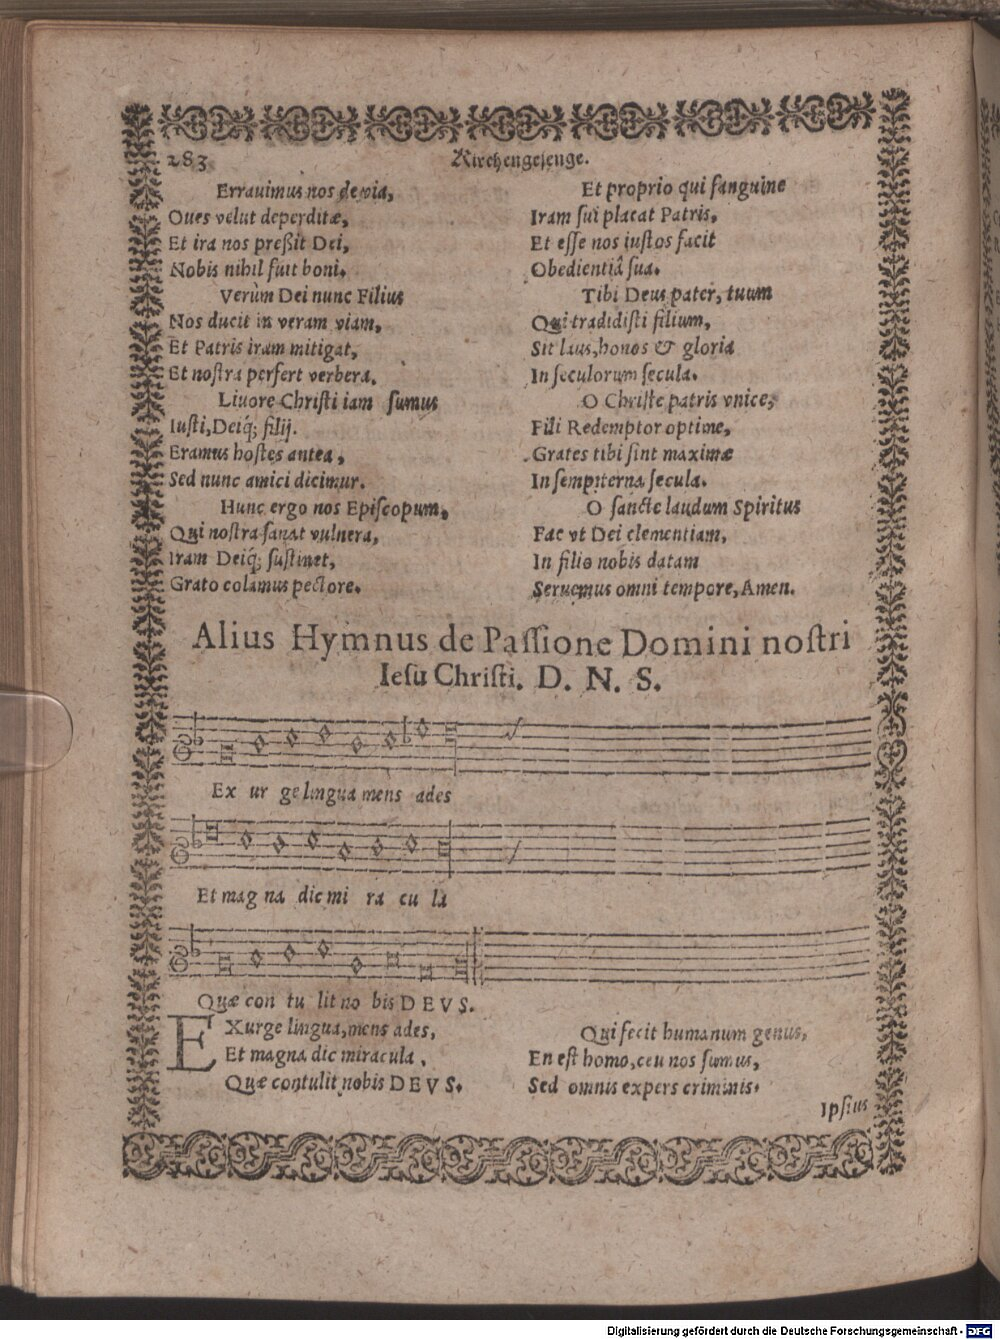 283
Kirchengesenge.
Errauimus nos de via,
Oues velut deperditæ,
Et ira nos preßit Dei,
Nobis nihil fuit boni.
Verùm Dei nunc Filius
Nos ducit in veram viam,
Et Patris iram mitigat,
Et nostra perfert verbera.
Liuore Christi iam sumus
Iusti, Deiq́; filij.
Eramus hostes antea,
Sed nunc amici dicimur.
Hunc ergo nos Episcopum,
Qui nostra sanat vulnera,
Iram Deiq́; sustinet,
Grato colamus pectore.
Et proprio qui sanguine
Iram sui placat Patris,
Et esse nos iustos facit
Obedientiâ sua.
Tibi Deus pater, tuum
Qui tradidisti filium,
Sit laus, honos & gloria
In seculorum secula.
O Christe patris vnice,
Fili Redemptor optime,
Grates tibi sint maximæ
In sempiterna secula.
O sancte laudum Spiritus
Fac vt Dei clementiam,
In filio nobis datam
Seruemus omni tempore, Amen.
Alius Hymnus de Passione Domini nostri
Iesu Christi. D. N. S.
Ex ur ge lingua mens ades
Et mag na dic mi ra cu la
Quæ con tu lit no bis DEVS.
EXurge lingua, mens ades,
Et magna dic miracula,
Quæ contulit nobis DEVS.
Qui fecit humanum genus,
En est homo, ceu nos sumus,
Sed omnis expers criminis.
Ipsius
Digitalisierung gefördert durch die Deutsche Forschungsgemeinschaft - DFG